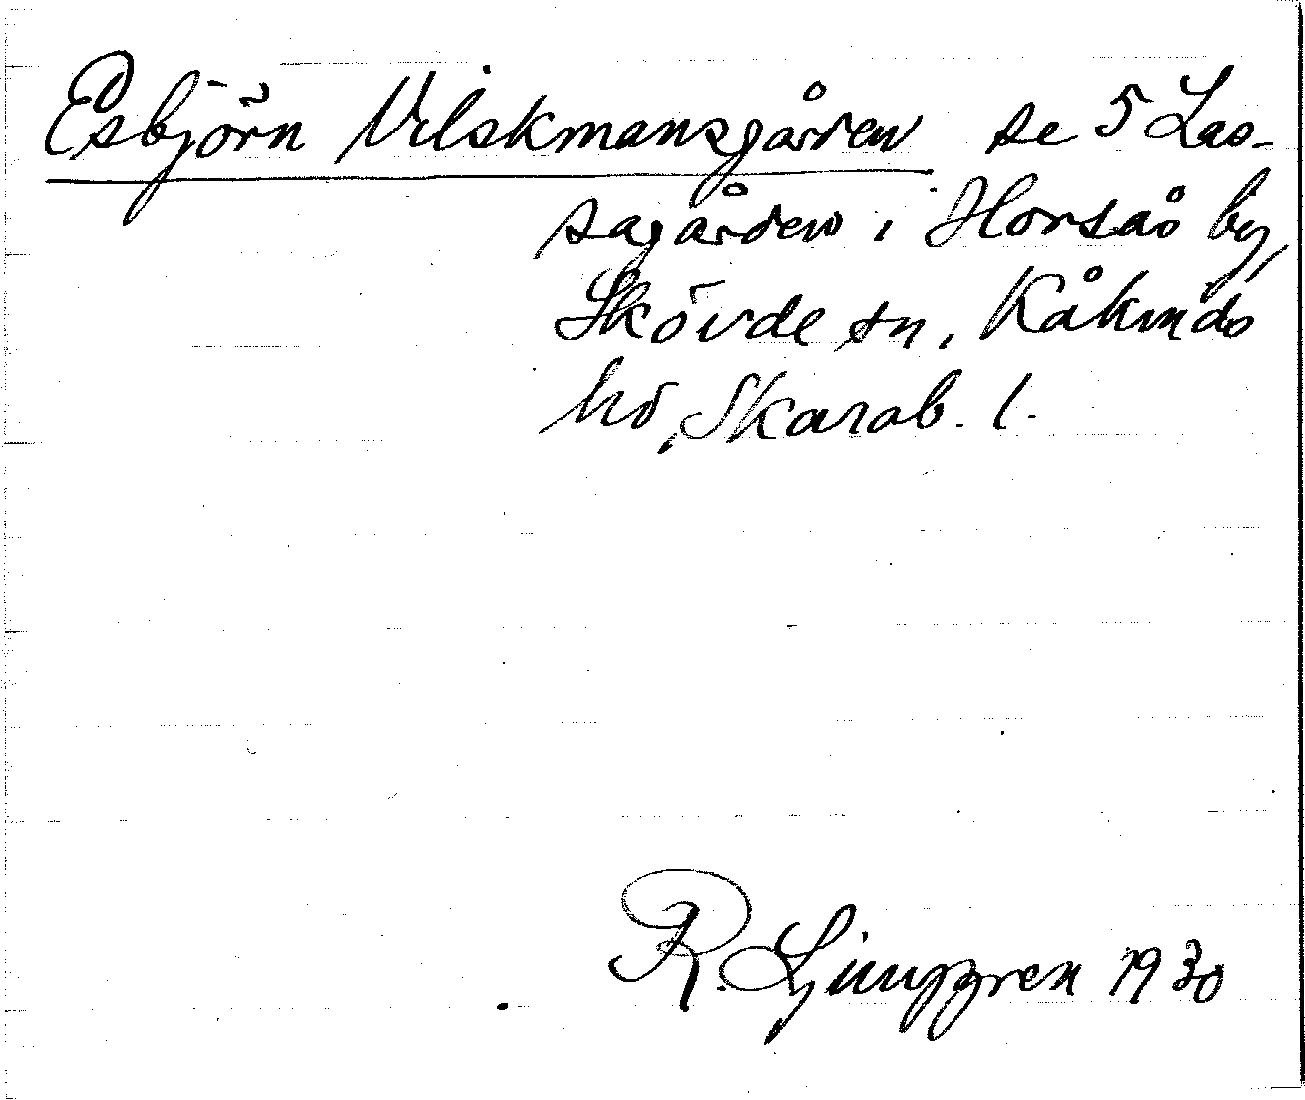 Esbjörn Vilskmansgården se 5 Las-
sagården i Horsås by,
Skövde sn, Kåkinds
hd, Skarab. l.
R. Ljunggren 1930